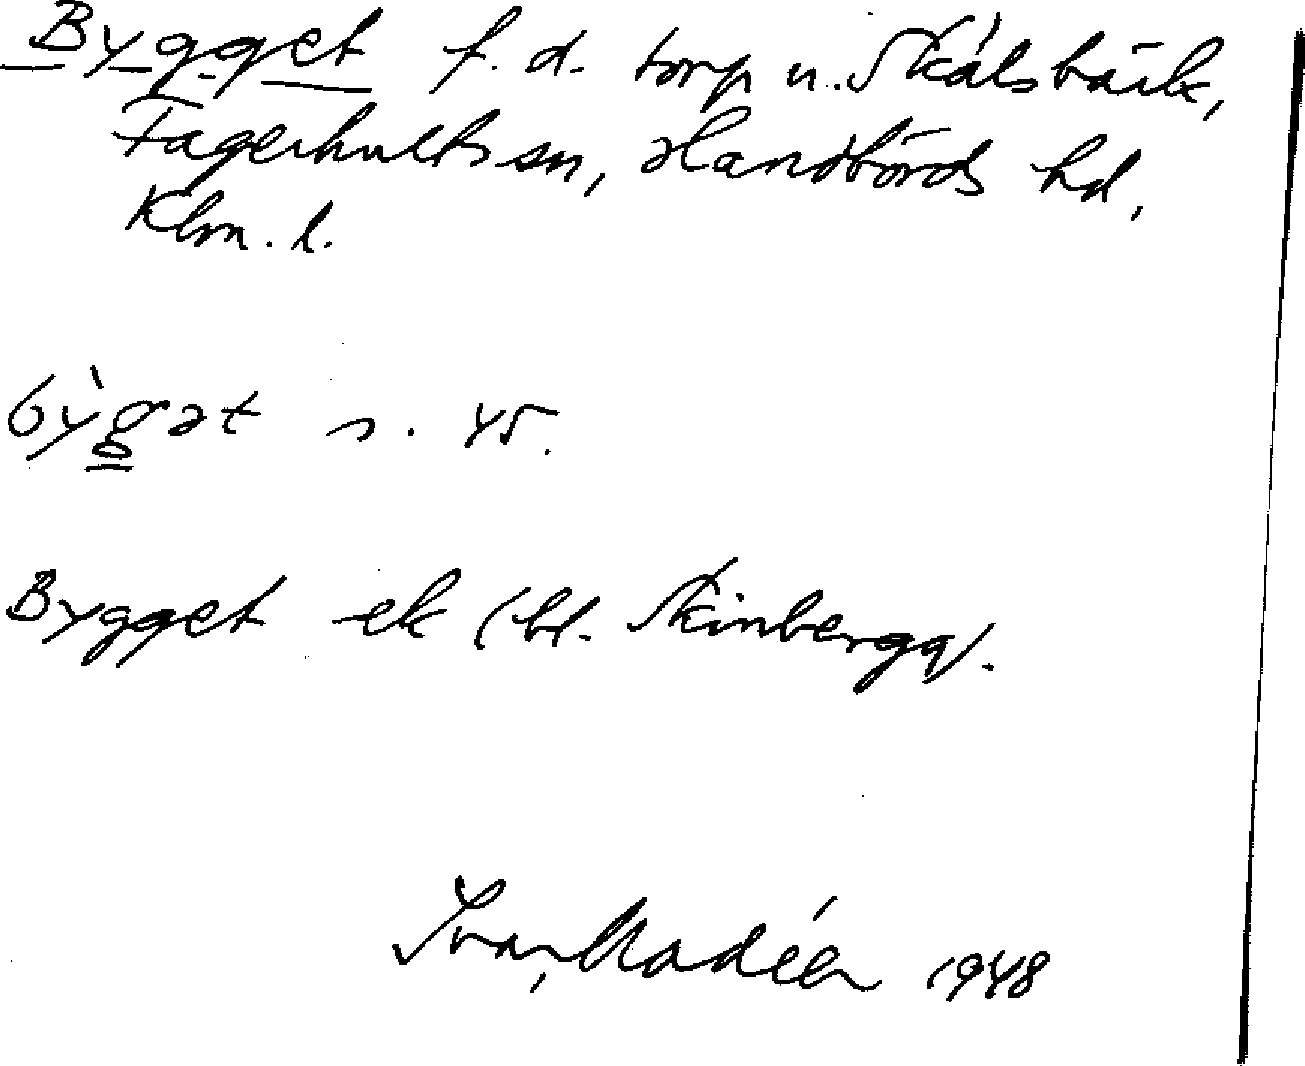 Bygget f. d. torp u. Skälsbäck,
Fagerhults sn, Handbörds hd,
Klm. l.
bỳgət s. 45.
Bygget ek (bl. Skinbergq).
Ivar Modéer 1948